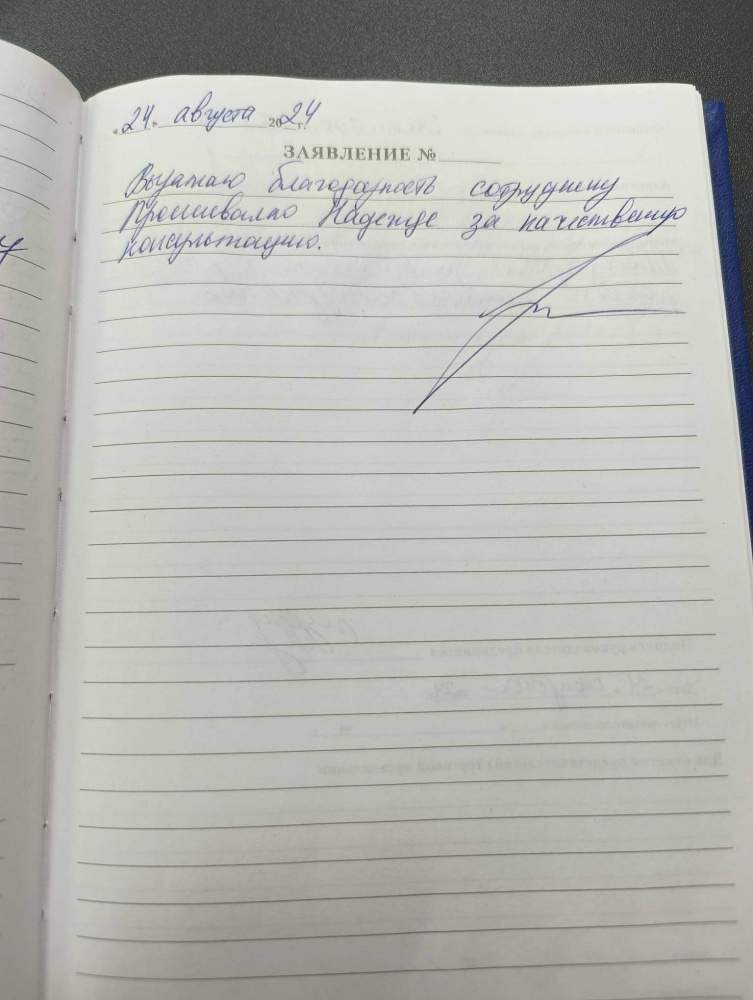 «24» августа 2024 г.
ЗАЯВЛЕНИЕ №
Выражаю благодарность сотруднику
Надежде за качественную
консультацию.